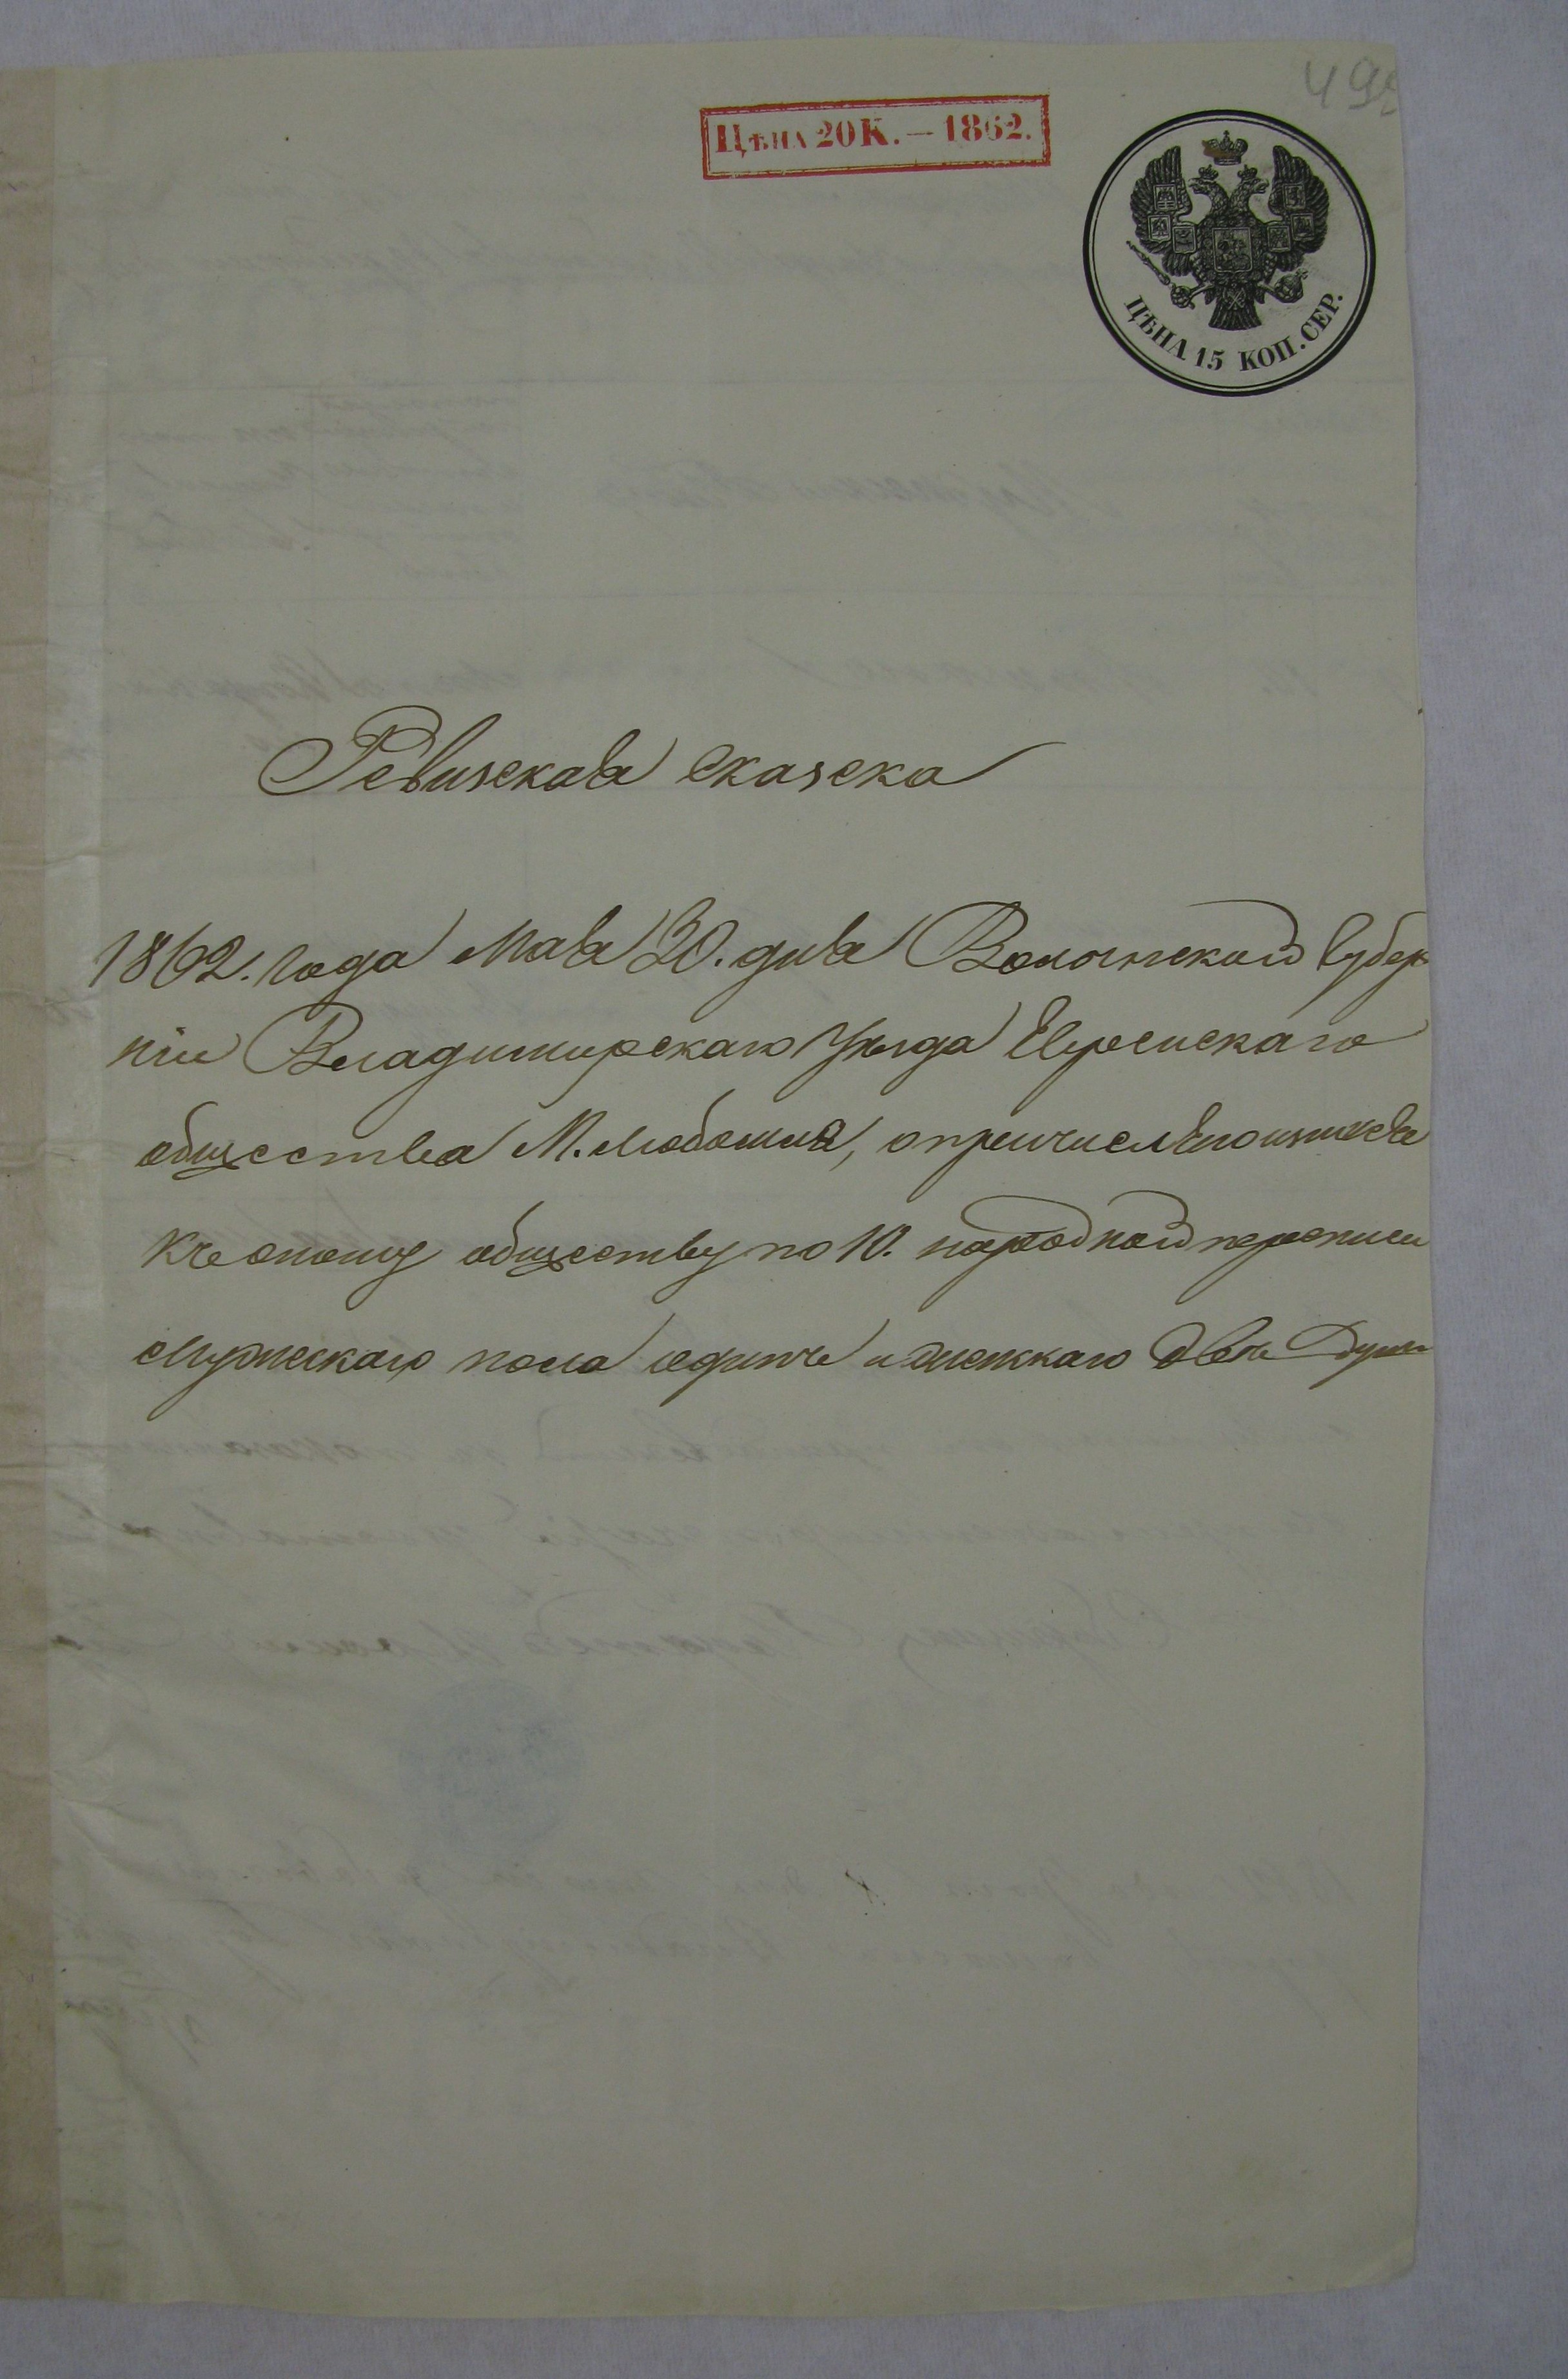 49
Цѣна 20 К. — 1862.
ЦѢНА 15 КОП. СЕР.
Ревизская сказска
1862. года Мая 30. дня Волынской Губер
ніи Владимирскаго Уѣзда Еврейскаго
общества М. Любомля, о причисляющихся
къ оному обществу по 10. народной переписи
Мужескаго пола єдинъ и женскаго двѣ Души